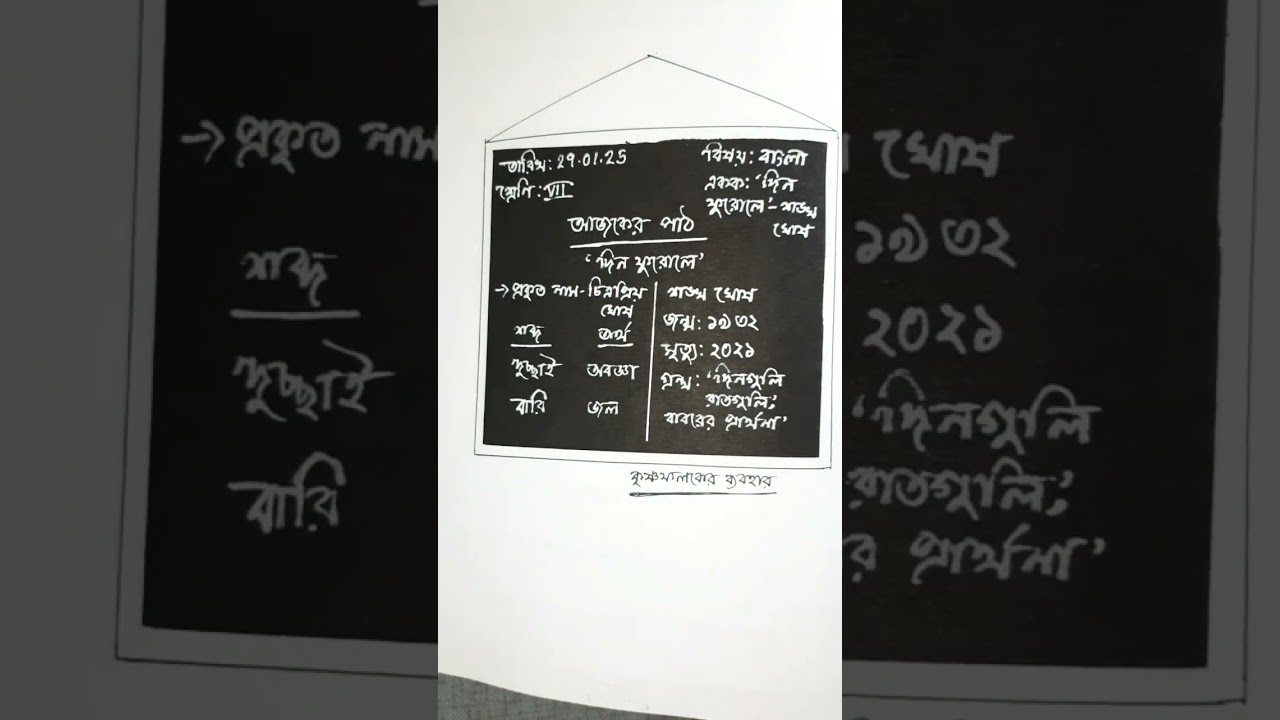 তারিখ: 29.01.25
শ্রেণি: VII
বিষয়: বাংলা
একক: 'দিন
ফুরোলে' - শঙ্খ
ঘোষ
আজকের পাঠ
'দিন ফুরোলে'
→ প্রকৃত নাম - চিত্তপ্রিয়
ঘোষ
শব্দ অর্থ
দুচ্ছাই অবজ্ঞা
বারি জল
শঙ্খ ঘোষ
জন্ম: ১৯৩২
মৃত্যু: ২০২১
গ্রন্থ: 'দিনগুলি
রাতগুলি',
বাবরের প্রার্থনা'
কৃষ্ণফলকের ব্যবহার